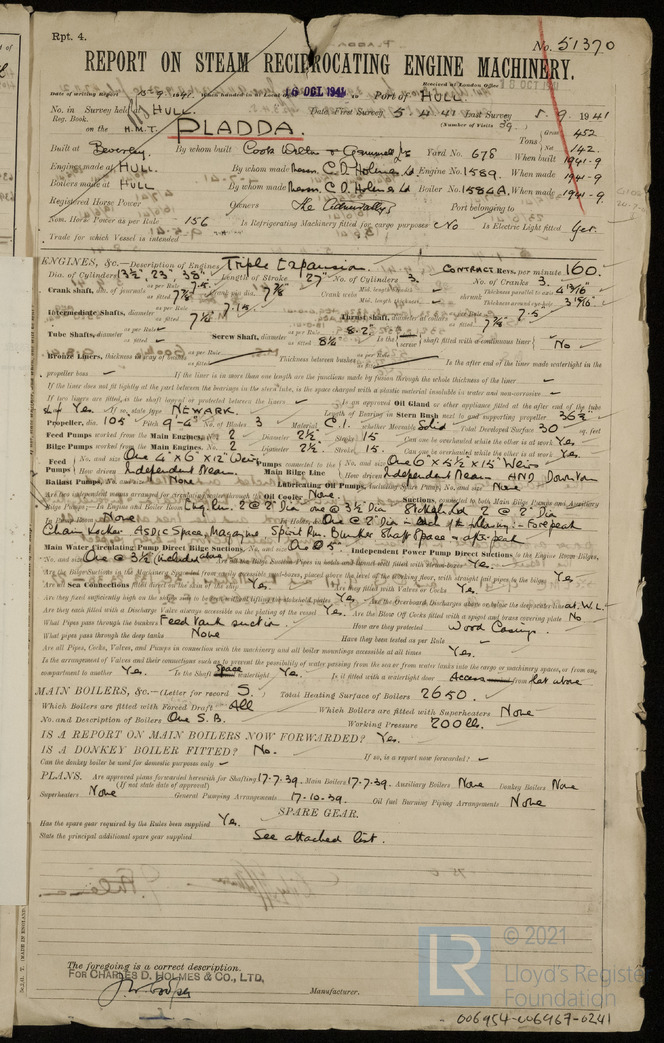 Rpt. 4.
No. 51370
REPORT ON STEAM RECIPROCATING ENGINE MACHINERY.
Received at London Office
Date of writing Report 19 When handed in at Local Office 16 OCT 1941 Port of HULL.
No. in Survey held at HULL. Date, First Survey 5 4 41 Last Survey 5. 9. 1941
Reg. Book. (Number of Visits 39.)
on the H.M.T. PLADDA. Tons Gross 452 Net 142.
Built at Beverley. By whom built Cook Welton & Gemmell Ld Yard No. 678 When built 1941-9
Engines made at HULL. By whom made Messrs. C. D. Holmes Ld Engine No. 1589. When made 1941-9
Boilers made at HULL By whom made Messrs. C. D. Holmes Ld Boiler No. 1586A. When made 1941-9
Registered Horse Power Owners The Admiralty Port belonging to
Nom. Horse Power as per Rule 156 Is Refrigerating Machinery fitted for cargo purposes No Is Electric Light fitted Yes.
Trade for which Vessel is intended
ENGINES, &c.—Description of Engines Triple Expansion. CONTRACT Revs. per minute 160.
Dia. of Cylinders 13½", 23" 38" Length of Stroke 27" No. of Cylinders 3. No. of Cranks 3.
Crank shaft, dia. of journals as per Rule 7.5 as fitted 7⅞" Crank webs Mid. length breadth Mid. length thickness shrunk Thickness parallel to axis 4 13/16" Thickness around eye-hole
Intermediate Shafts, diameter as per Rule 7.15 as fitted 7½" Thrust shaft, diameter at collars as per Rule 7.5 as fitted 7⅞"
Tube Shafts, diameter as per Rule as fitted Screw Shaft, diameter as per Rule 8.2" as fitted 8½ Is the screw shaft fitted with a continuous liner No
Bronze Liners, thickness in way of bushes as per Rule as fitted Thickness between bushes as per Rule as fitted Is the after end of the liner made watertight in the
propeller boss If the liner is in more than one length are the junctions made by fusion through the whole thickness of the liner
If the liner does not fit tightly at the part between the bearings in the stern tube, is the space charged with a plastic material insoluble in water and non-corrosive
If two liners are fitted, is the shaft lapped or protected between the liners Is an approved Oil Gland or other appliance fitted at the after end of the tube
shaft Yes. If so, state type NEWARK. Length of Bearing in Stern Bush next to and supporting propeller 36½"
Propeller, dia. 105" Pitch 9-4" No. of Blades 3 Material C.I. whether Moveable Solid Total Developed Surface 30 sq. feet
Feed Pumps worked from the Main Engines, No. 2 Diameter 2½" Stroke 15" Can one be overhauled while the other is at work Yes.
Bilge Pumps worked from the Main Engines, No. 2 Diameter 2½" Stroke 15" Can one be overhauled while the other is at work Yes.
Feed Pumps No. and size One 4" x 6" x 12" Weirs How driven Independent Steam. Pumps connected to the Main Bilge Line No. and size One 6" x 5½" x 15" Weirs How driven Independent Steam AND Downton
Ballast Pumps, No. and size None Lubricating Oil Pumps, including Spare Pump, No. and size None
Are two independent means arranged for circulating water through the Oil Cooler None Suctions, connected to both Main Bilge Pumps and Auxiliary
Bilge Pumps;—In Engine and Boiler Room Eng. Rm. 2 @ 2" Dia one @ 3½" Dia Stokehold 2 @ 2" Dia
In Pump Room None In Holds, &c. One @ 2" Dia in each of the following:- Forepeak
Chain Locker Asdic Space, Magazine Spirit Rm. Bunker Shaft Space & aft peak
Main Water Circulating Pump Direct Bilge Suctions, No. and size One @ 5" Independent Power Pump Direct Suctions to the Engine Room Bilges,
No. and size One @ 3½" included above Are all the Bilge Suction Pipes in holds and tunnel well fitted with strum-boxes Yes.
Are the Bilge Suctions in the Machinery Spaces led from easily accessible mud-boxes, placed above the level of the working floor, with straight tail pipes to the bilges Yes
Are all Sea Connections fitted direct on the skin of the ship Yes. Are they fitted with Valves or Cocks Yes.
Are they fixed sufficiently high on the ship's side to be seen without lifting the stokehold plates Yes Are the Overboard Discharges above or below the deep water line at W.L.
Are they each fitted with a Discharge Valve always accessible on the plating of the vessel Yes. Are the Blow Off Cocks fitted with a spigot and brass covering plate No
What Pipes pass through the bunkers Feed tank suction. How are they protected Wood Casings.
What pipes pass through the deep tanks None Have they been tested as per Rule
Are all Pipes, Cocks, Valves, and Pumps in connection with the machinery and all boiler mountings accessible at all times Yes.
Is the arrangement of Valves and their connections such as to prevent the possibility of water passing from the sea or from water tanks into the cargo or machinery spaces, or from one
compartment to another Yes. Is the Shaft Space watertight Yes. Is it fitted with a watertight door Access from flat above
MAIN BOILERS, &c.—(Letter for record S.) Total Heating Surface of Boilers 2650.
Which Boilers are fitted with Forced Draft All Which Boilers are fitted with Superheaters None
No. and Description of Boilers One S.B. Working Pressure 200 lb.
IS A REPORT ON MAIN BOILERS NOW FORWARDED? Yes.
IS A DONKEY BOILER FITTED? No. If so, is a report now forwarded?
Can the donkey boiler be used for domestic purposes only
PLANS. Are approved plans forwarded herewith for Shafting 17-7-39. Main Boilers 17-7-39. Auxiliary Boilers None Donkey Boilers None
(If not state date of approval)
Superheaters None General Pumping Arrangements 17-10-39. Oil fuel Burning Piping Arrangements None
SPARE GEAR.
Has the spare gear required by the Rules been supplied Yes.
State the principal additional spare gear supplied See attached list.
The foregoing is a correct description.
FOR CHARLES D. HOLMES & CO., LTD,
Manufacturer.
LR
© 2021
Lloyd's Register
Foundation
006954-006967-0241